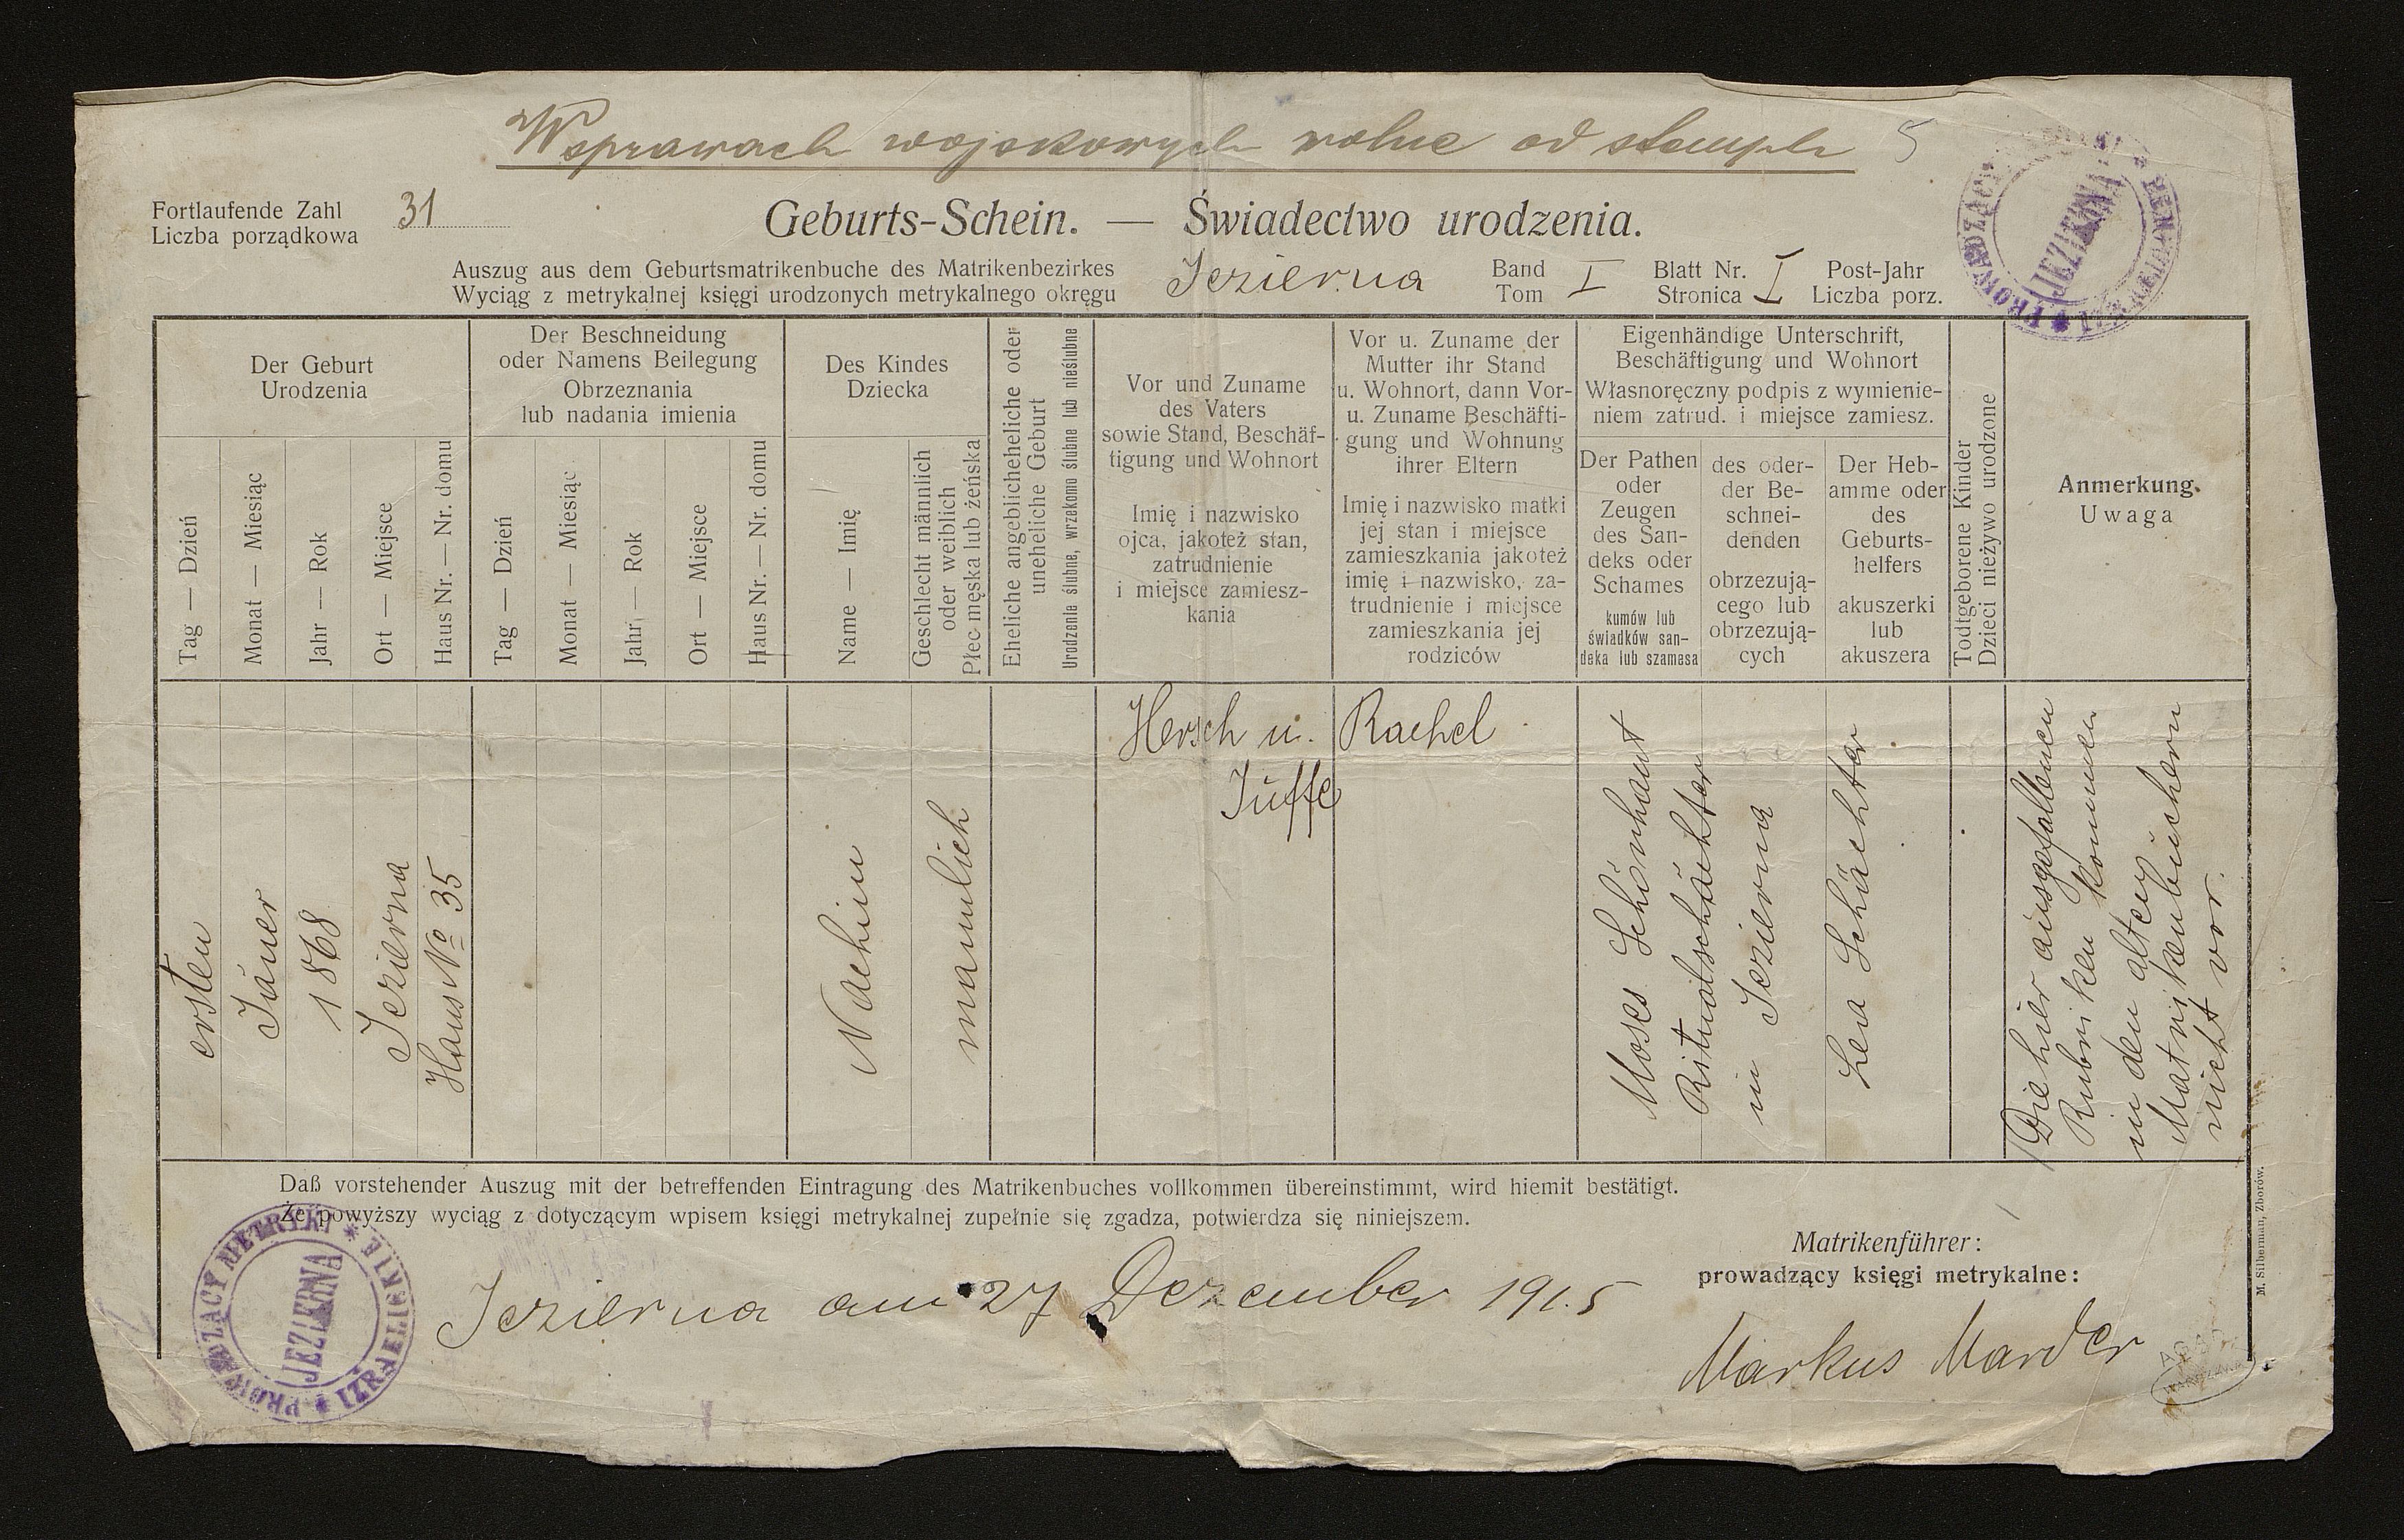 W sprawach wojskowych wolne od stempla 5
Fortlaufende Zahl
Liczba porządkowa
31
Geburts-Schein. — Świadectwo urodzenia.
Auszug aus dem Geburtsmatrikenbuche des Matrikenbezirkes
Wyciąg z metrykalnej księgi urodzonych metrykalnego okręgu
Jezierna
Band
Tom
I
Blatt Nr.
Stronica
I
Post-Jahr
Liczba porz.
PROWADZĄCY METRYKI IZRAELICKIE
JEZIERNA
Der Geburt
Urodzenia
Tag — Dzień
Monat — Miesiąc
Jahr — Rok
Ort — Miejsce
Haus Nr. — Nr. domu
Der Beschneidung
oder Namens Beilegung
Obrzeznania
lub nadania imienia
Tag — Dzień
Monat — Miesiąc
Jahr — Rok
Ort — Miejsce
Haus Nr. — Nr. domu
Des Kindes
Dziecka
Name — Imię
Geschlecht männlich
oder weiblich
Płec męska lub żeńska
Eheliche angeblicheheliche oder
uneheliche Geburt
Urodzenie ślubne, wrzekomo ślubne lub nieślubne
Vor und Zuname
des Vaters
sowie Stand, Beschäf-
tigung und Wohnort
Imię i nazwisko
ojca, jakoteż stan,
zatrudnienie
i miejsce zamiesz-
kania
Vor u. Zuname der
Mutter ihr Stand
u. Wohnort, dann Vor-
u. Zuname Beschäfti-
gung und Wohnung
ihrer Eltern
Imię i nazwisko matki
jej stan i miejsce
zamieszkania jakoteż
imię i nazwisko, za-
trudnienie i miejsce
zamieszkania jej
rodziców
Eigenhändige Unterschrift,
Beschäftigung und Wohnort
Własnoręczny podpis z wymienie-
niem zatrud. i miejsce zamiesz.
Der Pathen
oder
Zeugen
des San-
deks oder
Schames
kumów lub
świadków san-
deka lub szamesa
des oder-
der Be-
schnei-
denden
obrzezują-
cego lub
obrzezują-
cych
Der Heb-
amme oder
des
Geburts-
helfers
akuszerki
lub
akuszera
Todtgeborene Kinder
Dzieci nieżywo urodzone
Anmerkung.
Uwaga
ersten
Jäner
1868
Jezierna
Haus No 35
Nachim
mannlich
Hersch u. Rachel
Juffe
Moses Schönhaut
Ritualschächter
in Jezierna
Lea Schächter
Die hier ausgefallenen
Rubriken kommen
in den alten
Matrikenbüchern
nicht vor.
Daß vorstehender Auszug mit der betreffenden Eintragung des Matrikenbuches vollkommen übereinstimmt, wird hiemit bestätigt.
Że powyższy wyciąg z dotyczącym wpisem księgi metrykalnej zupełnie się zgadza, potwierdza się niniejszem.
PROWADZĄCY METRYKI IZRAELICKIE
JEZIERNA
Jezierna am 27 Dezember 1915
Matrikenführer:
prowadzący księgi metrykalne:
Markus Marder
M. Silberman, Zborów.